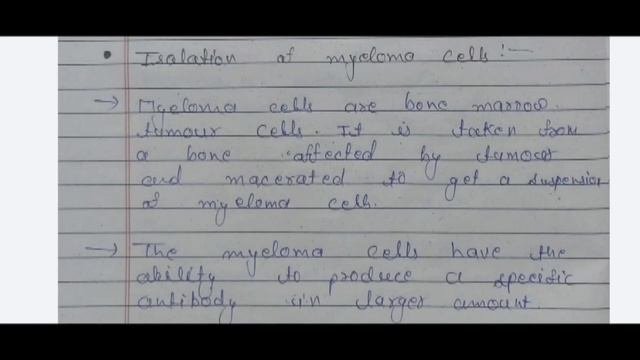 • Isolation of myeloma cells :—
→ Myeloma cells are bone marrow
tumour cells. It is taken from
a bone affected by tumour
and macerated to get a suspension
of myeloma cells.
→ The myeloma cells have the
ability to produce a specific
antibody in larger amount.